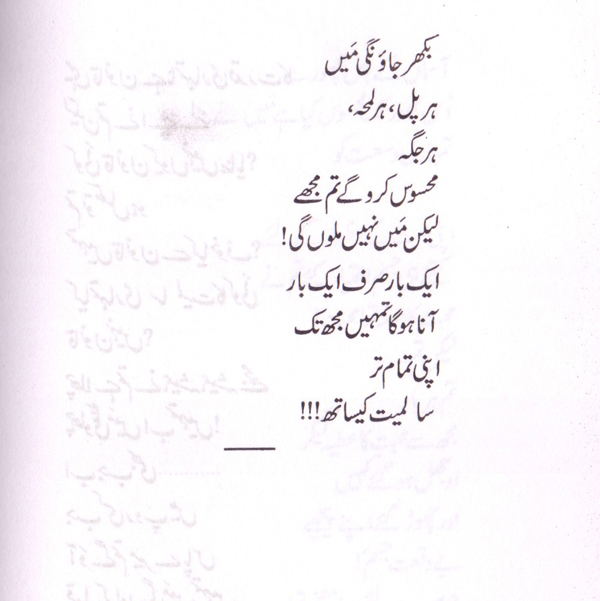 بکھر جاؤنگی مَیں
ہر پل، ہر لمحہ،
ہر جگہ
محسوس کرو گے تم مجھے
لیکن مَیں نہیں ملوں گی!
ایک بار صرف ایک بار
آنا ہوگا تمہیں مجھ تک
اپنی تمام تر
سالمیت کیساتھ!!!